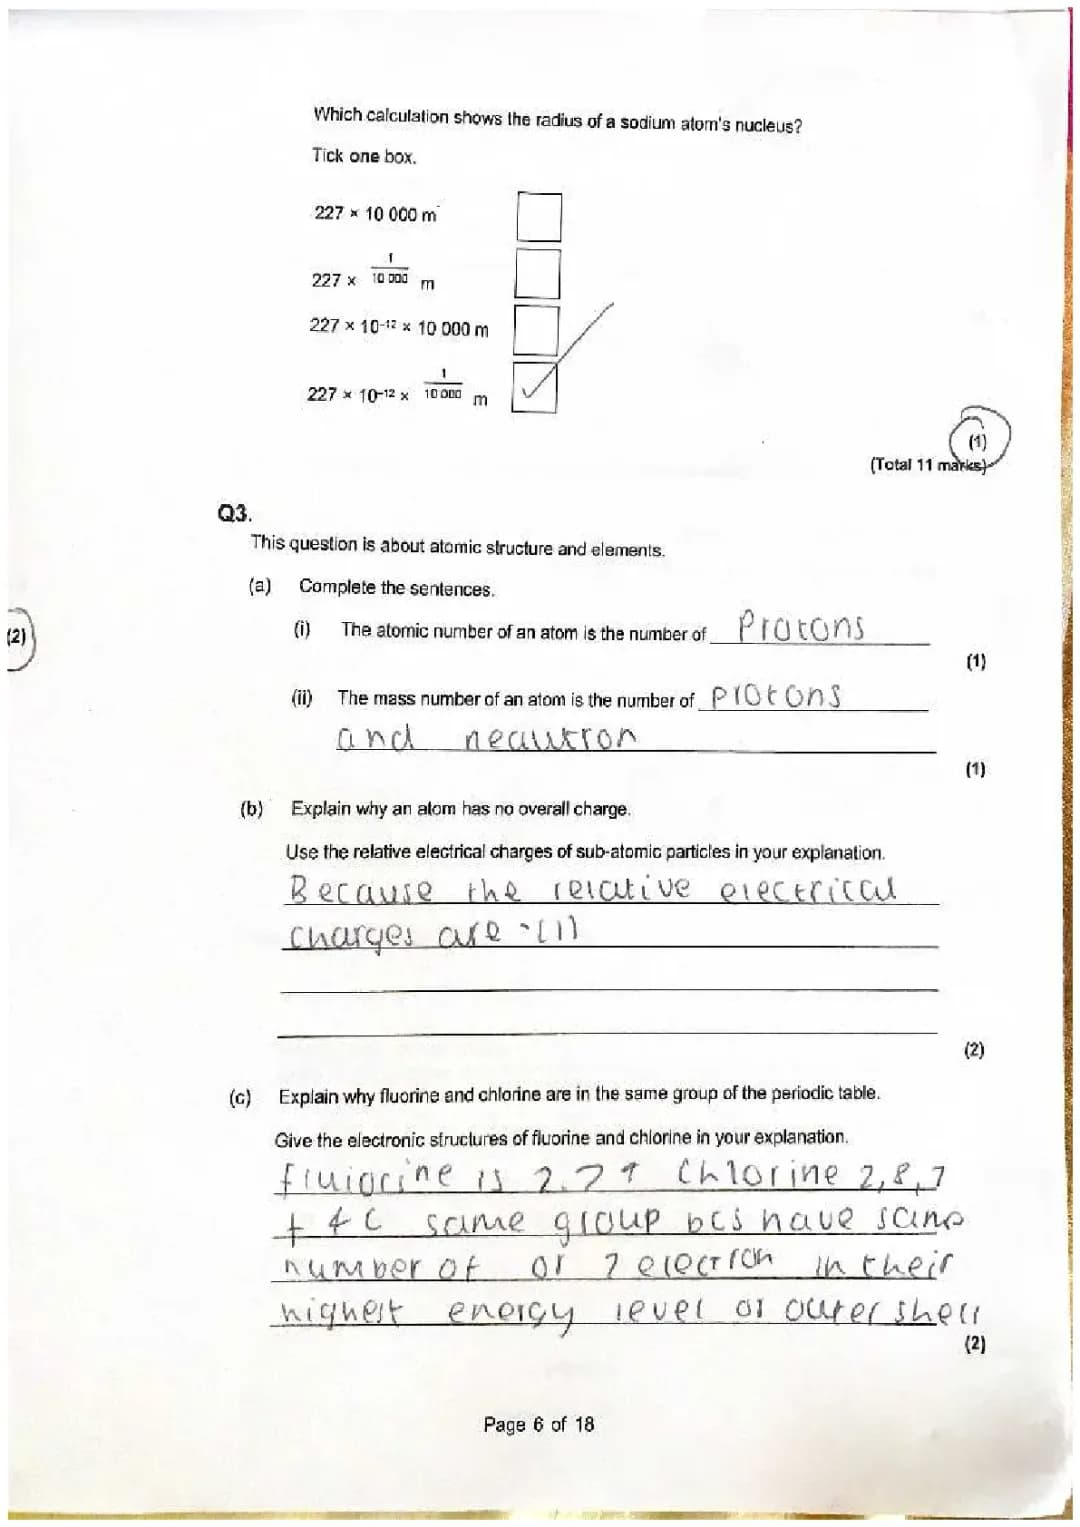 Which calculation shows the radius of a sodium atom's nucleus?
Tick one box.
227 × 10 000 m
227 × 1/10 000 m
227 × 10-12 × 10 000 m
227 × 10-12 × 1/10 000 m
(1)
(Total 11 marks)
Q3.
This question is about atomic structure and elements.
(a) Complete the sentences.
(2)
(i) The atomic number of an atom is the number of Protons
(1)
(ii) The mass number of an atom is the number of protons
and neawtron
(1)
(b) Explain why an atom has no overall charge.
Use the relative electrical charges of sub-atomic particles in your explanation.
Because the relative electrical
charges are
(2)
(c) Explain why fluorine and chlorine are in the same group of the periodic table.
Give the electronic structures of fluorine and chlorine in your explanation.
fluiorine is 2.7 Chlorine 2,8,7
same group bcs have same
number of or 7 electron in their
highest energy level or outer shell
(2)
Page 6 of 18